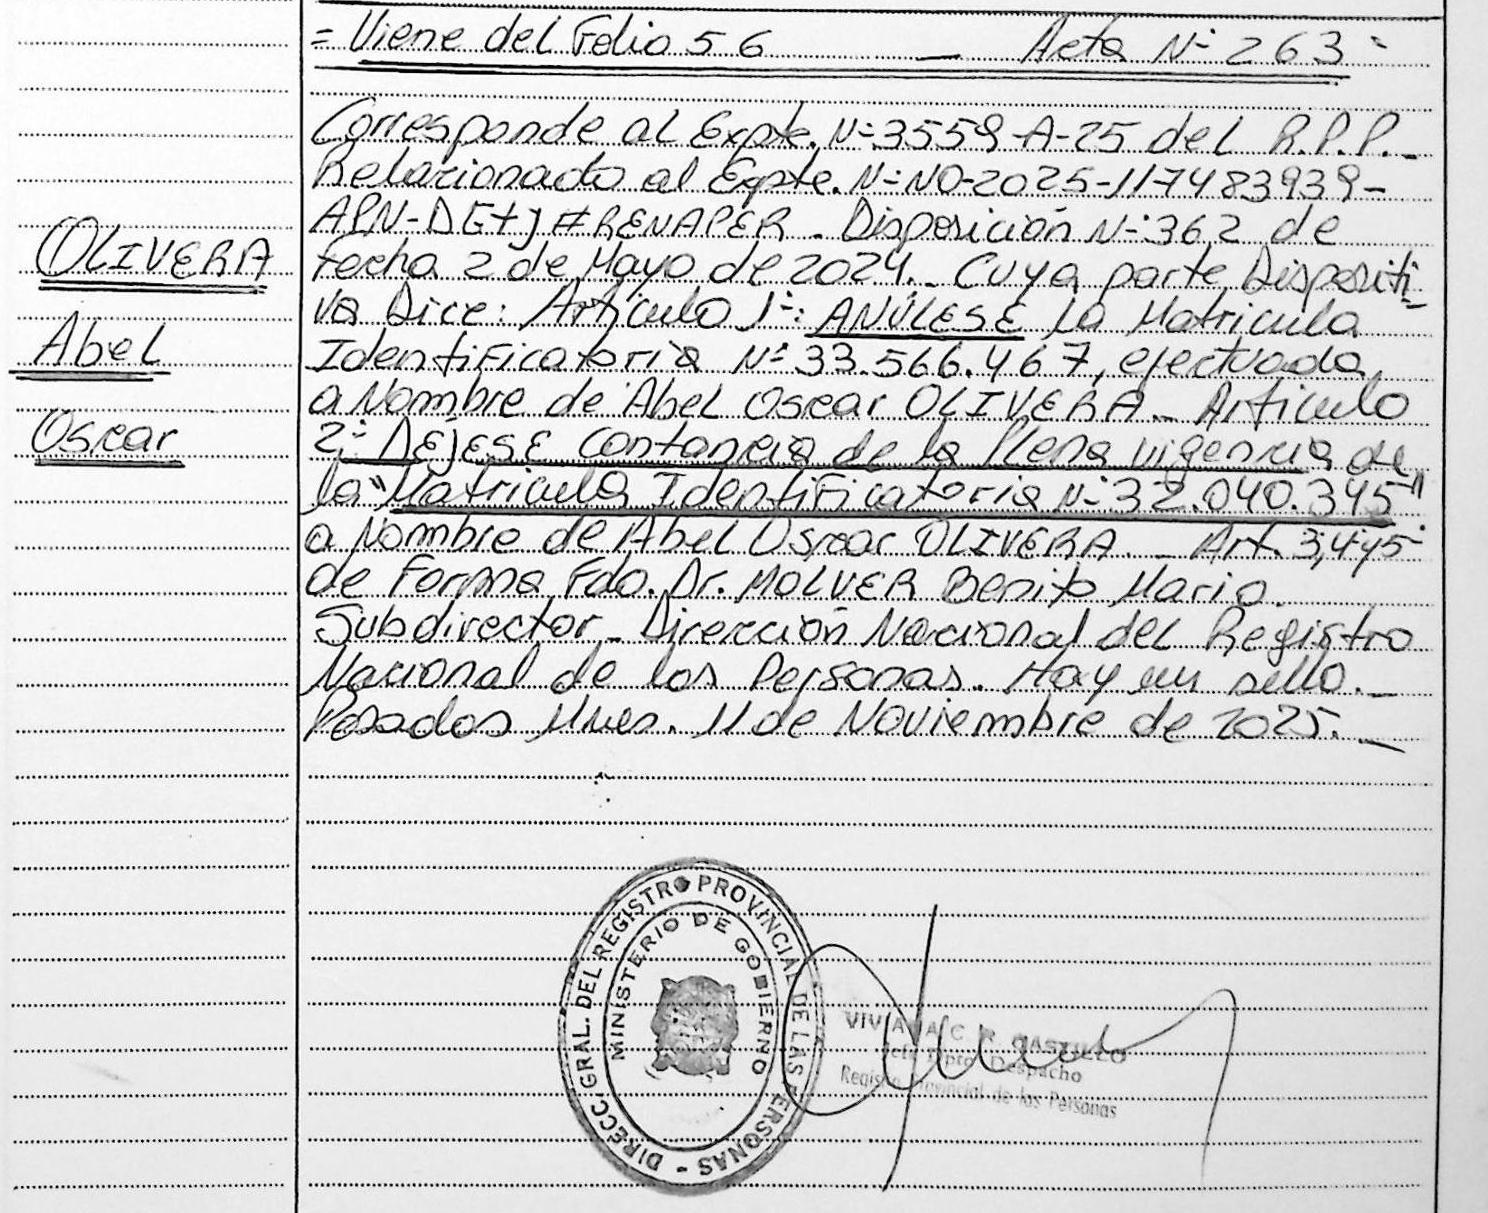 = Viene del Folio 56 — Acta N° 263 =
Corresponde al Expte. N° 3559-A-25 del R.P.P.-
Relacionado al Expte. N° NO-2025-117483939-
APN-DG+J#RENAPER. Disposición N° 362 de
OLIVERA
Fecha 2 de Mayo de 2024.- Cuya parte Dispositi-
va Dice: Artículo 1°: ANÚLESE la Matricula
Abel
Identificatoria N° 33.566.467, efectuada
a Nombre de Abel Oscar OLIVERA.- Artículo
Oscar
2° DÉJESE Contancia de la Plena vigencia de
la "Matricula Identificatoria N° 32.040.345"
a Nombre de Abel Oscar OLIVERA.- Art. 3,4y5
de Forma. Fdo. Dr. MOLVER Benito Mario.
Subdirector - Dirección Nacional del Registro
Nacional de los Personas. Hay un sello.-
Posadas Mnes. 11 de Noviembre de 2025.-
DIRECC. GRAL. DEL REGISTRO PROVINCIAL DE LAS PERSONAS -
MINISTERIO DE GOBIERNO
VIVIANA C. R. CASTILLO
Jefe Dpto. Despacho
Registro Provincial de las Personas